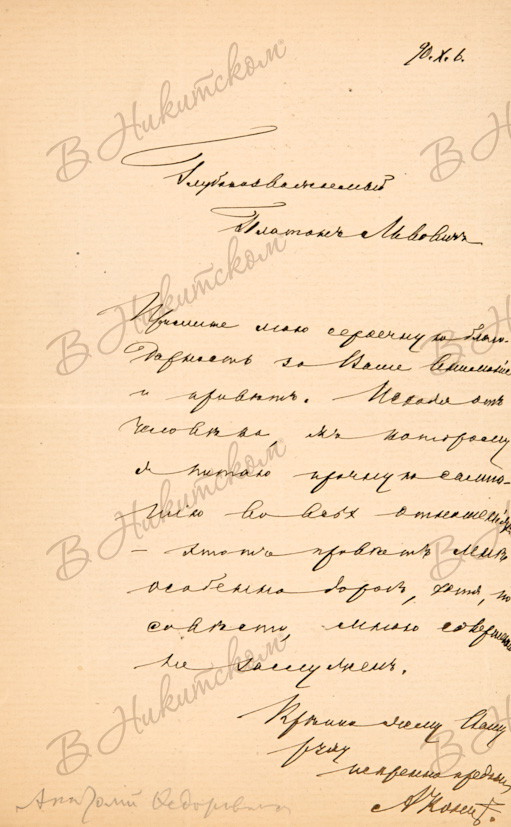 90.X.6.
Глубокоуважаемый
Платонъ Львовичъ
Примите мою сердечную благо-
дарность за Ваше вниманіе
и привѣтъ. Исходя отъ
человѣка, къ которому
я питаю прочную симпа-
тію во всѣх отношеніях
– этотъ привѣтъ мнѣ
особенно дорогъ, хотя, по
совѣсти, мною совершенно
не заслуженъ.
Крѣпко жму Вашу
руку
искренно преданный
А Кони
Анатолий Федорович
В Никитском
В Никитском
В Никитском
В Никитском